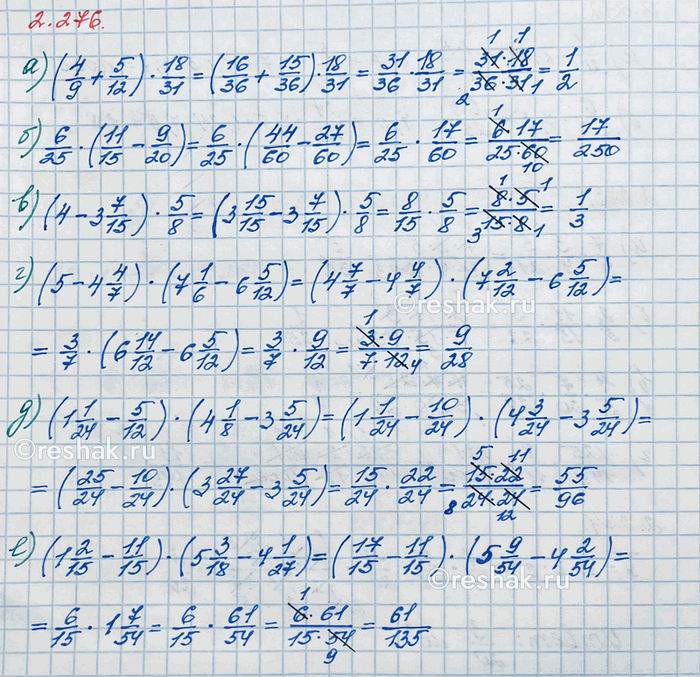 2.276.
а) (4/9 + 5/12) · 18/31 = (16/36 + 15/36) · 18/31 = 31/36 · 18/31 = 31 · 18/36 · 31 = 1/2
б) 6/25 · (11/15 − 9/20) = 6/25 · (44/60 − 27/60) = 6/25 · 17/60 = 6 · 17/25 · 60 = 17/250
в) (4 − 3 7/15) · 5/8 = (3 15/15 − 3 7/15) · 5/8 = 8/15 · 5/8 = 8 · 5/15 · 8 = 1/3
г) (5 − 4 4/7) · (7 1/6 − 6 5/12) = (4 7/7 − 4 4/7) · (7 2/12 − 6 5/12) =
= 3/7 · (6 14/12 − 6 5/12) = 3/7 · 9/12 = 3 · 9/7 · 12 = 9/28
д) (1 1/24 − 5/12) · (4 1/8 − 3 5/24) = (1 1/24 − 10/24) · (4 3/24 − 3 5/24) =
= (25/24 − 10/24) · (3 27/24 − 3 5/24) = 15/24 · 22/24 = 15 · 22/24 · 24 = 55/96
е) (1 2/15 − 11/15) · (5 3/18 − 4 1/27) = (17/15 − 11/15) · (5 9/54 − 4 2/54) =
= 6/15 · 1 7/54 = 6/15 · 61/54 = 6 · 61/15 · 54 = 61/135
©reshak.ru
©reshak.ru
©reshak.ru